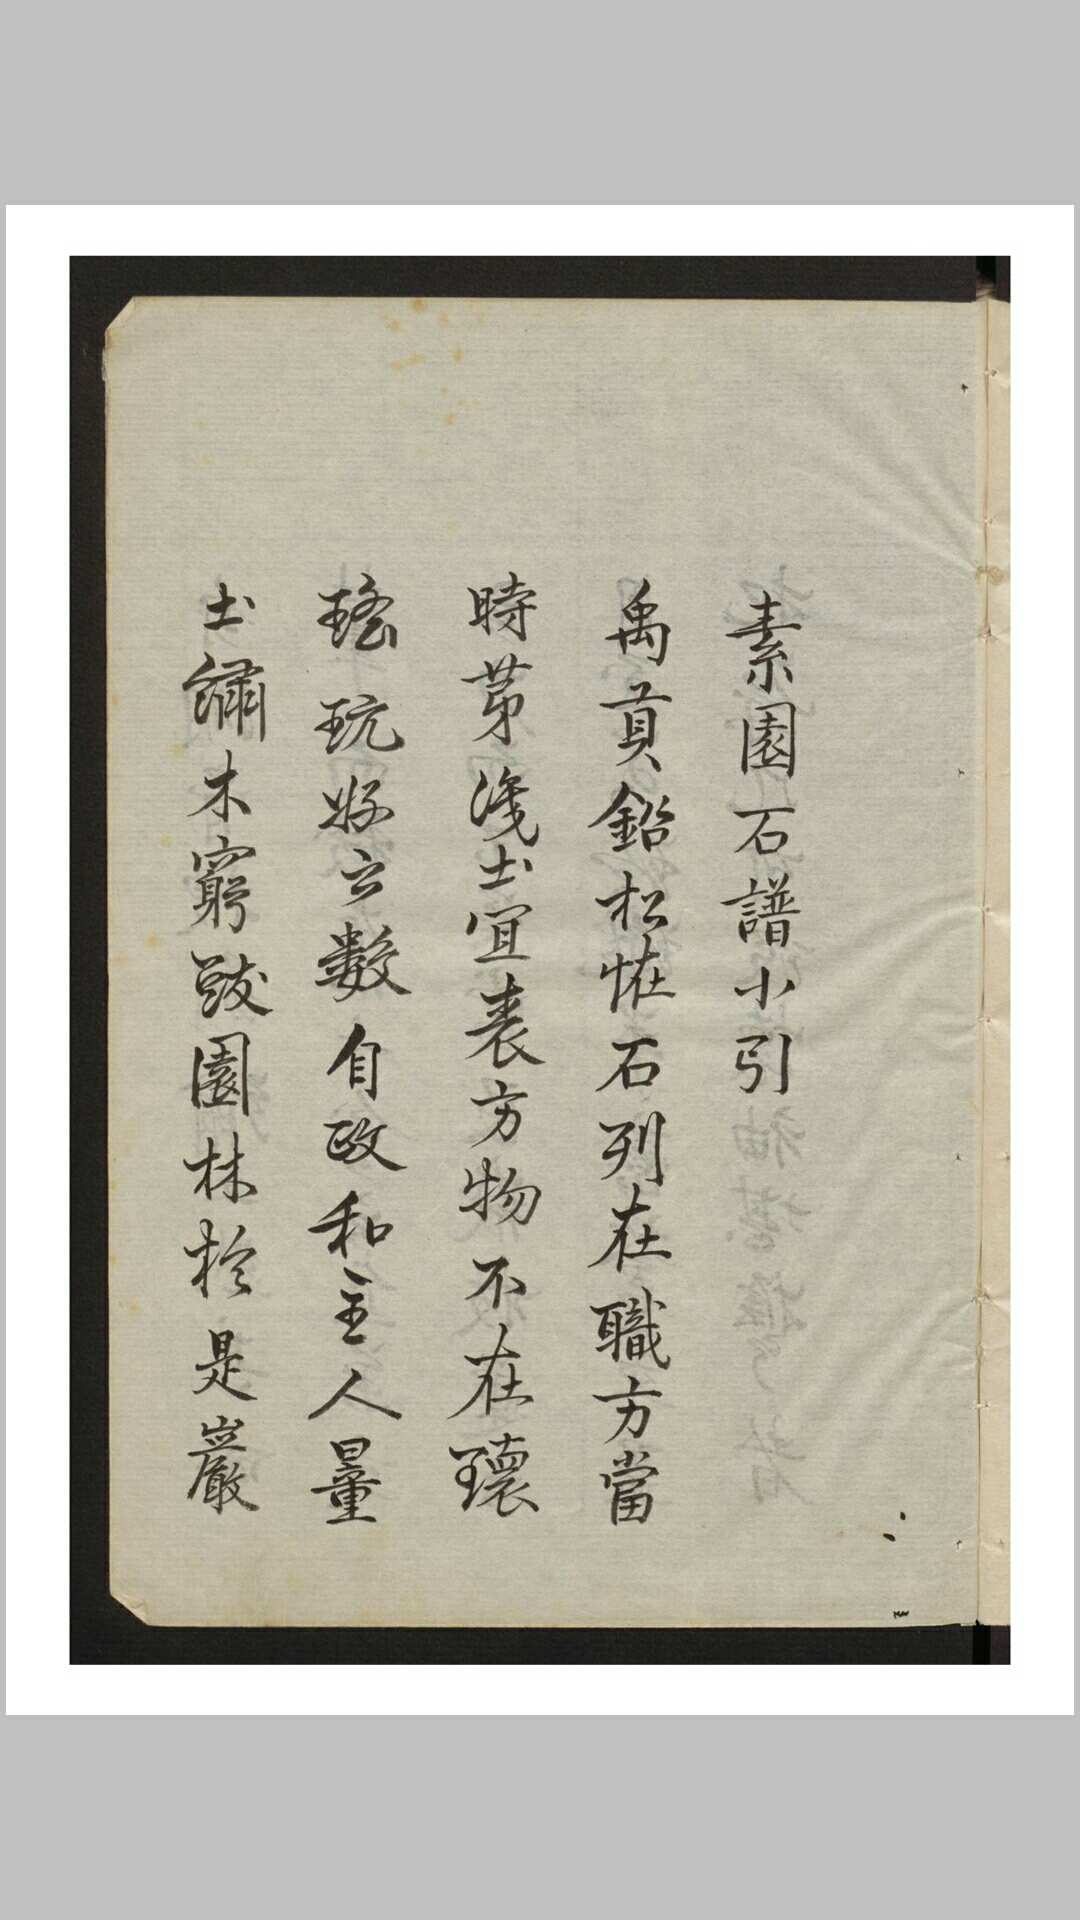 素園石譜小引
禹貢鉛松恠石列在職方當
時苐淺土宜表方物不在瓌
瑤玩好云數自政和主人量
土繡木窮鼥園林於是巖